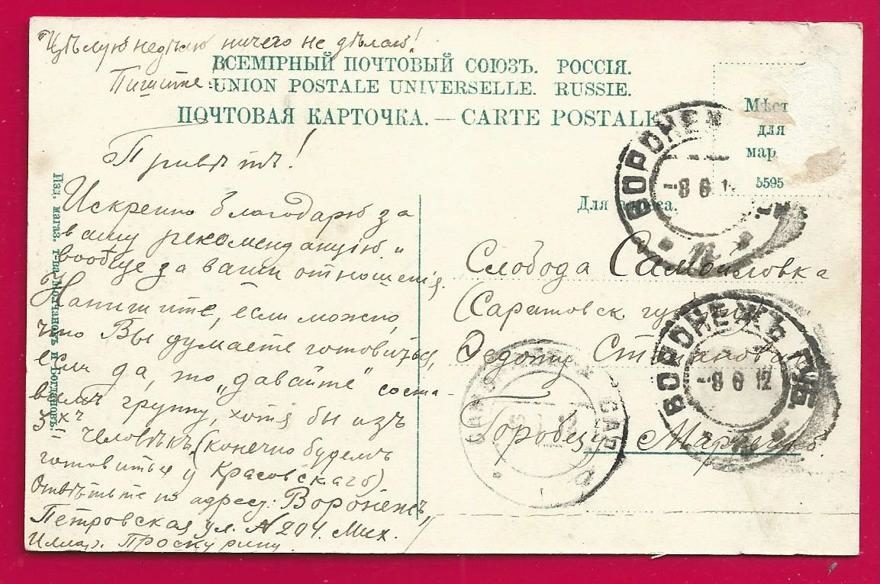 Цѣлую недѣлю ничего не дѣлаю!
Пишите!
ВСЕМІРНЫЙ ПОЧТОВЫЙ СОЮЗЪ. РОССІЯ.
UNION POSTALE UNIVERSELLE. RUSSIE.
ПОЧТОВАЯ КАРТОЧКА. — CARTE POSTALE
Мѣст
для
мар
5595
Для
Привѣтъ!
Искренно благодарю за
вашу рекомендацію и
вообще за ваши отношенія.
Напишите, если можно,
что Вы думаете готовиться,
если да, то „давайте" соста-
вимъ группу, хотя бы изъ
3-хъ человѣкъ. (конечно будемъ
готовиться у Красовскаго)
Отвѣтьте по адресу: Воронежъ,
Петровская ул. № 204. Мих.
Иллар. Проскурину.
Слобода Самойловка
Саратовск губ
Федоту
Городецк
Изд. магаз. т-ва Молчановъ и Богдановъ.
ВОРОНЕЖ
-8 6 1
ВОРОНЕЖЪ ГУБ.
-8 6 12
САР